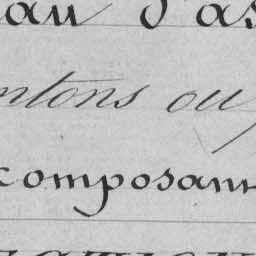 au d'as
ntons ou
composant